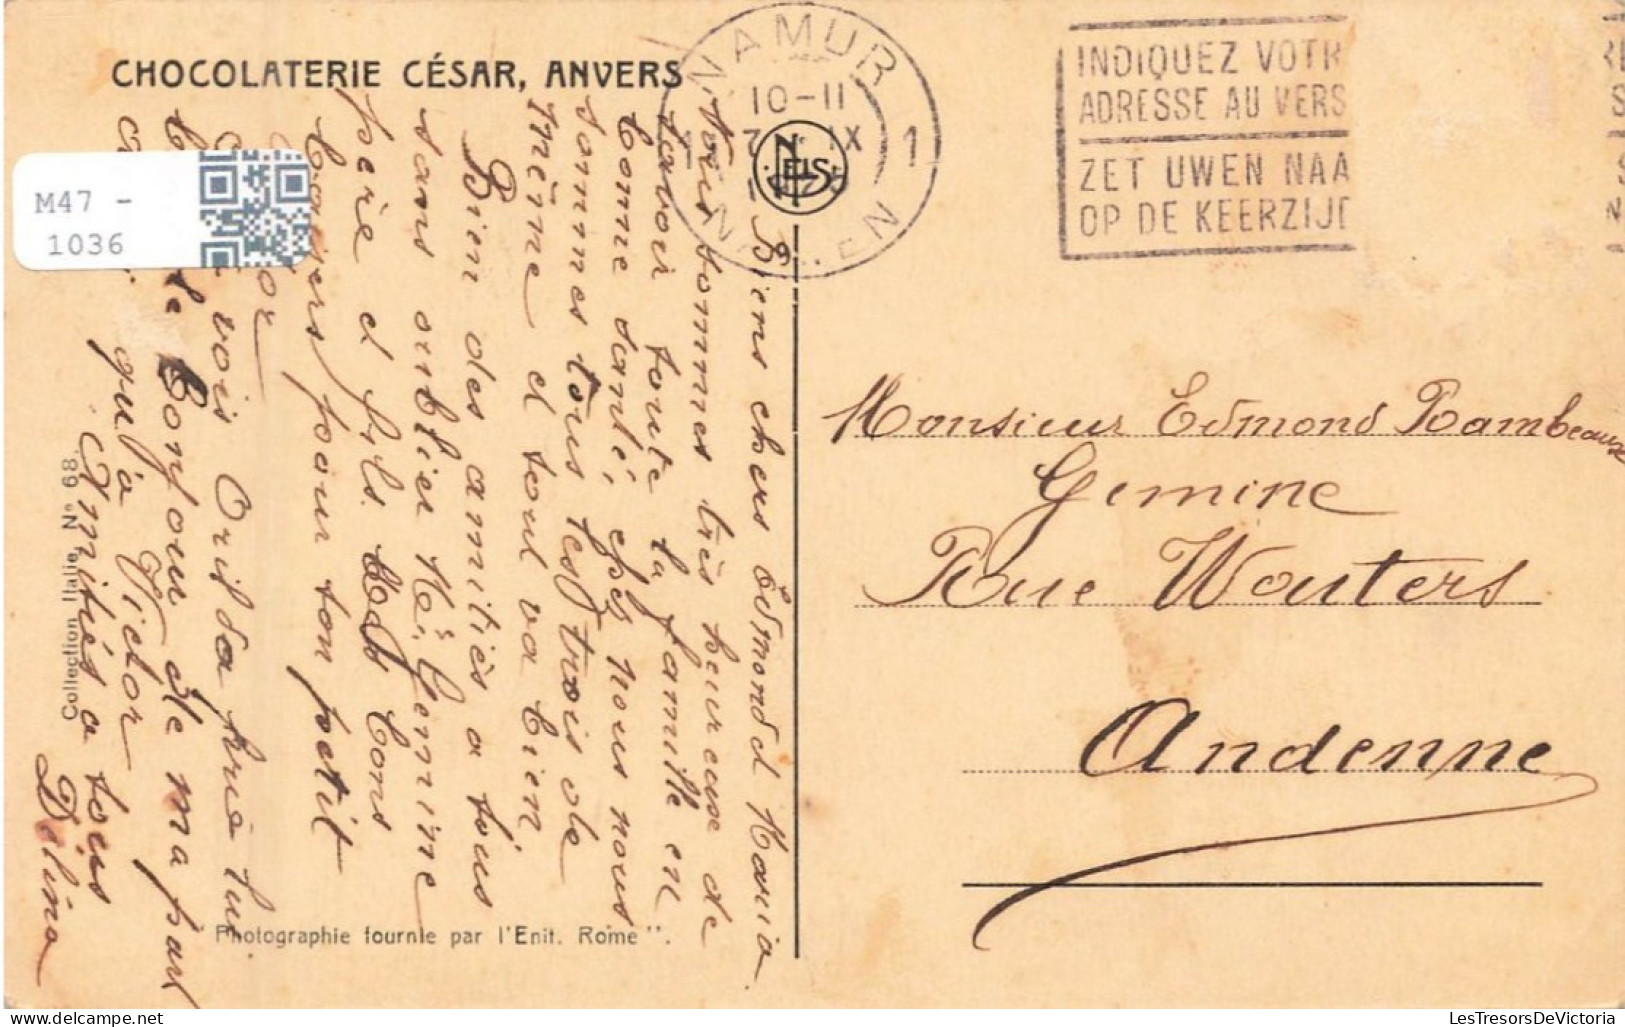 CHOCOLATERIE CÉSAR, ANVERS
NAMUR 1
10-11
IX
NELS
NAMEN
INDIQUEZ VOTR
ADRESSE AU VERS
ZET UWEN NAA
OP DE KEERZIJD
M47 -
1036
Monsieur Edmond Rambeaux
Gemine
Rue Wouters
Andenne
Biens chers Edmond Maria
Nous sommes très heureuse de
savoir toute la famille en
bonne santé, chez nous nous
sommes tous les trois de
même et tout va bien
Bien des amitiès a tous
sans oublier Mr Gemine
père et fils. bons
baisers pour ton petit
vois
lui
le Bonjour de ma part
Victor
Amitiés a tous
Delina
Collection Italie. N° 68.
Photographie fournie par l'Enit. Rome".
LesTresorsDeVictoria